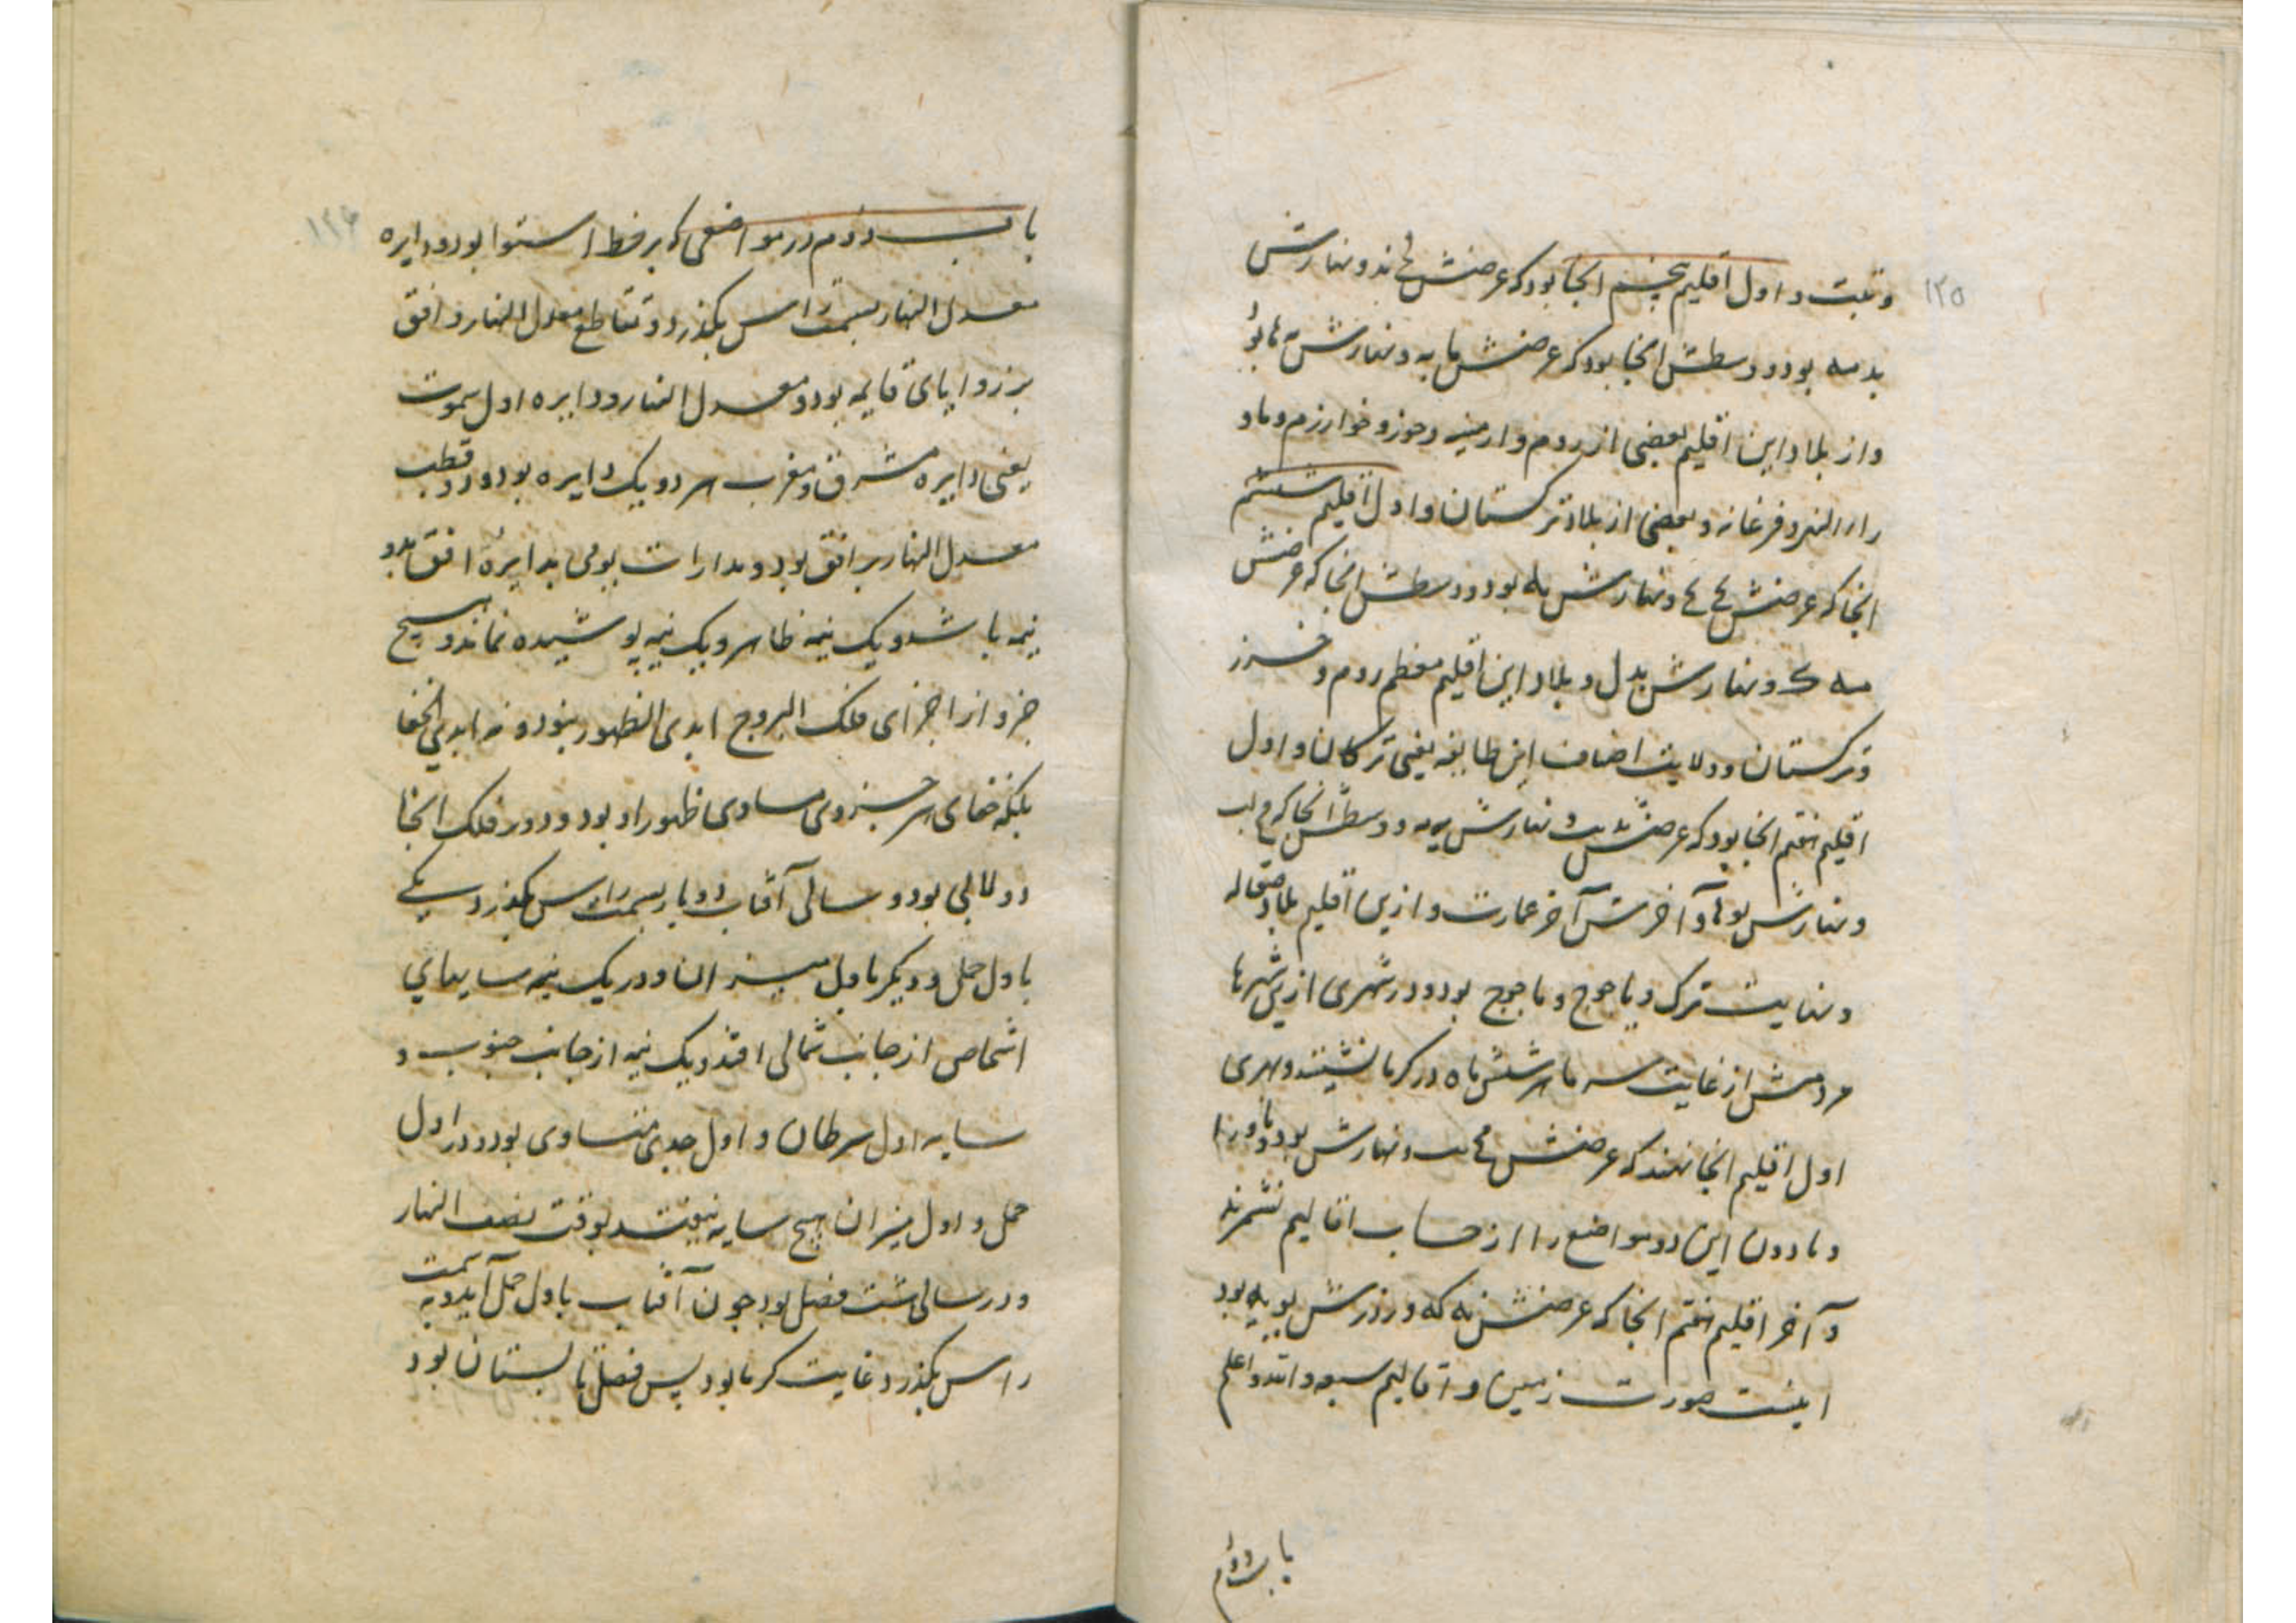 ۱۲۵
وتبت و اول اقلیم پنجم انجا بود که عرضش ند و نهارش
ید مه بود و وسطش انجا بود که عرضش ما یه و نهارش یه ها بود
و از بلاد این اقلیم بعضی از روم و ارمنیه و حوز و خوارزم و ماو
راء النهر و فرغانه و بعضی از بلاد ترکستان و اول اقلیم ششم
انجا که عرضش و نهارش یه بود و وسطش انجا که عرضش
مه ک و نهارش یه ل و بلاد این اقلیم معظم روم و خزر
و ترکستان و ولایت اصناف این طایفه یعنی ترکان و اول
اقلیم هفتم انجا بود که عرضش و نهارش یه مه و وسطش انجا که
و نهارش یو ها و آخرش آخر عمارت و ازین اقلیم بلاد صقاله
و نهایت ترک و یاجوج و ماجوج بود و در شهری ازین شهرها
مردمش از غایت سرما هر شش ماه در کرما نشینند و بهری
اول اقلیم انجا نهند که عرضش و نهارش بود و ماورا
و مادون این دو مواضع را از حساب اقالیم نشمرند
و آخر اقلیم هفتم انجا که عرضش نه که و روزش یو یه بود
اینست صورت زمین و اقالیم سبعه و الله اعلم
باب دوم
۱۲۶
باب دوم در مواضعی که بر خط استوا بود و دایره
معدل النهار بسمت راس بکذرد و تقاطع معدل النهار و افق
بر زوایای قایمه بود و معدل النهار و دایره اول سموت
یعنی دایره مشرق و مغرب هر دو یک دایره بود و دو قطب
معدل النهار بر افق بود و مدارات یومی بدایرۀ افق بدو
نیمه باشد و یک نیمه ظاهر و یک نیمه پوشیده نماند و هیچ
جزو از اجزای فلک البروج ابدی الظهور نبود و نه ابدی الخفا
بلکه خفای هر جزوی مساوی ظهور او بود و دور فلک انجا
دولابی بود و سالی آفتاب دو بار بسمت راس بکذرد یکی
باول حمل و دیکر باول میزان و در یک نیمه سایهای
اشخاص از جانب شمالی افتد و یک نیمه از جانب جنوب و
سایه اول سرطان و اول جدی متساوی بود و در اول
حمل و اول میزان هیچ سایه نیفتد بوقت نصف النهار
و در سالی هشت فصل بود چون آفتاب باول حمل آید و به سمت
راس بکذرد غایت کرما بود پس فصل تابستان بود